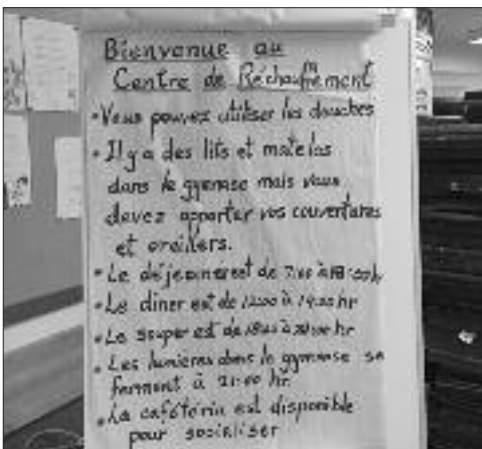 Bienvenue au
Centre de Réchauffement
• Vous pouvez utiliser les douches
• Il y a des lits et matelas
dans le gymnase mais vous
devez apporter vos couvertures
et oreillers.
• Le déjeuner est de 7:00 à
• Le diner est de 12:00 à 14:00 hr
• Le souper est de à hr
• Les lumieres dans le gymnase se
ferment à 21:00 hr
• La cafétéria est disponible
pour socialiser